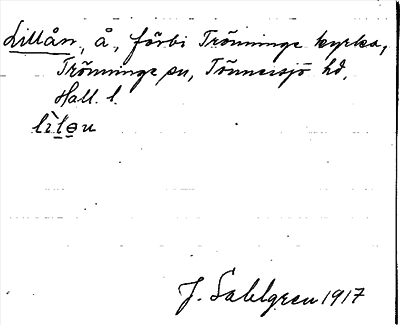 Lillån, å, förbi Trönninge kyrka,
Trönninge sn, Tönnersjö hd,
Hall. l.
lìlən
J. Sahlgren 1917